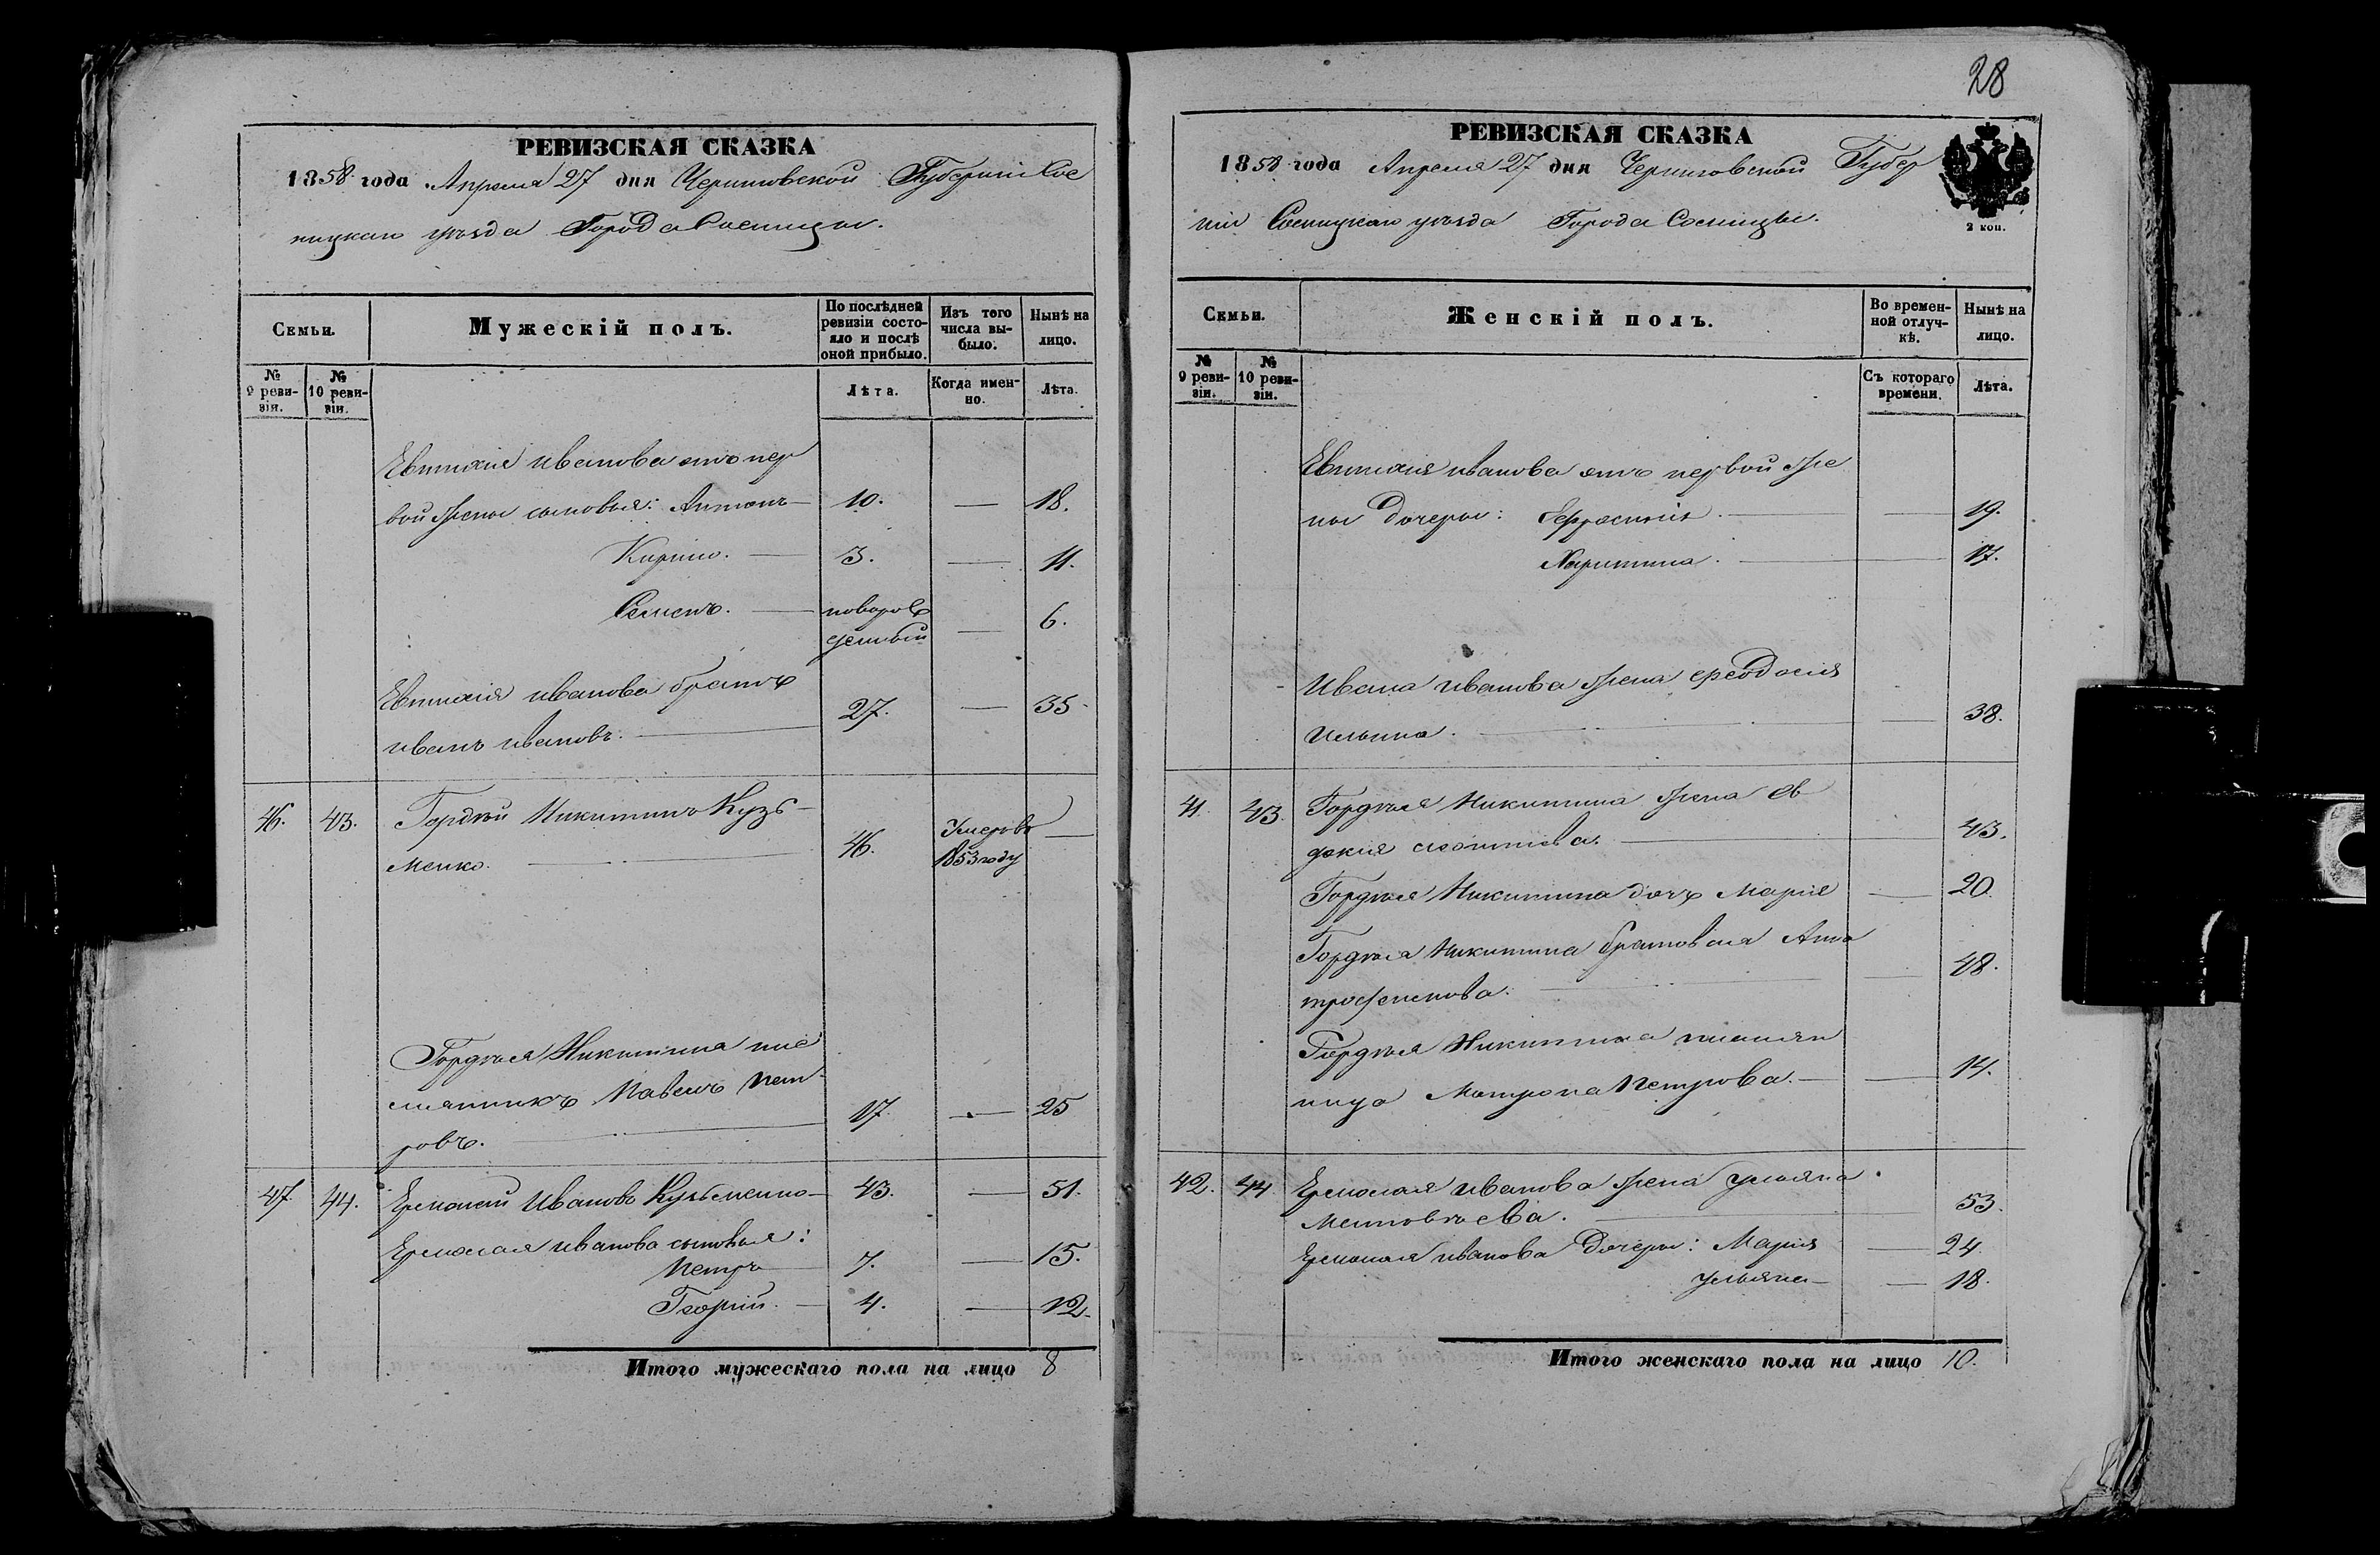 28
РЕВИЗСКАЯ СКАЗКА
1858 года Апреля 27 дня Черниговской Губерніи Сос
ницкаго уѣзда Города Сосницы.
Семьи.
Мужескій полъ.
По послѣдней ревизіи состояло и послѣ оной прибыло.
Изъ того числа выбыло.
Нынѣ на лицо.
№ 9 ревизія.
№ 10 ревизіи.
Лѣта.
Когда именно.
Лѣта.
Евтихія Иванова отъ пер
вой жены сыновья: Антонъ — 10. — 18.
Кирило. — 3. — 11.
Семенъ. — новорож
денный — 6.
Евтихія Иванова братъ
Иванъ Ивановъ. — 27. — 35.
46. 43. Гордѣй Никитинъ Кузь-
менко. — 46. Умеръ въ
1853 году —
Гордѣя Никитина пле
мянникъ Павелъ Пет-
ровъ. — 17 — 25
47 44. Ермолай Ивановъ Кузьменко — 43. — 51.
Ермолая Иванова сыновья:
Петръ — 7. — 15.
Георгій. — 4. — 12.
Итого мужескаго пола на лицо 8
РЕВИЗСКАЯ СКАЗКА
1858 года Апреля 27 дня Черниговской Губер
ніи Сосницкаго уѣзда Города Сосницы.
2 коп.
Семьи.
Женскій полъ.
Во временной отлучкѣ.
Нынѣ на лицо.
№ 9 ревизіи.
№ 10 ревизіи.
Съ котораго времени.
Лѣта.
Евтихія Иванова отъ первой же
ны дочеры: Ефросинія. — 19.
Харитина. — 17.
Ивана Иванова жена Феодосія
Ильина. — 38.
41. 43. Гордѣя Никитина жена Ев
докія — 43.
Гордѣя Никитина дочь Марія — 20.
Гордѣя Никитина братовая Анна
Трофимова. — 48.
Гордѣя Никитина племян
ница Матрона Петрова. — 14.
42. 44. Ермолая Иванова жена Ульяна
Матвѣева. — 53.
Ермолая Иванова дочеры: Марія — 24.
Ульяна — 18.
Итого женскаго пола на лицо 10.